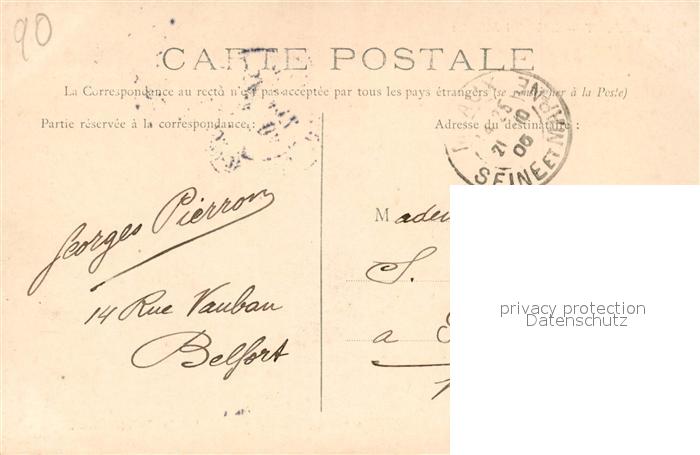 90
CARTE POSTALE
La Correspondance au recto n'est pas acceptée par tous les pays étrangers (se renseigner à la Poste)
Partie réservée à la correspondance :
Adresse du destinataire :
21 10 06
SEINE ET MARNE
Georges Pierron
14 Rue Vauban
Belfort
S.
a
privacy protection
Datenschutz